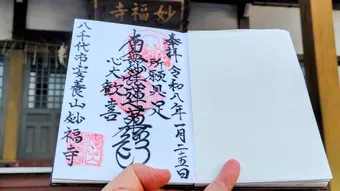 妙福寺
奉拝 令和八年一月二五日
所願具足
南無妙法蓮華経
心大歓喜
八千代市安養山妙福寺